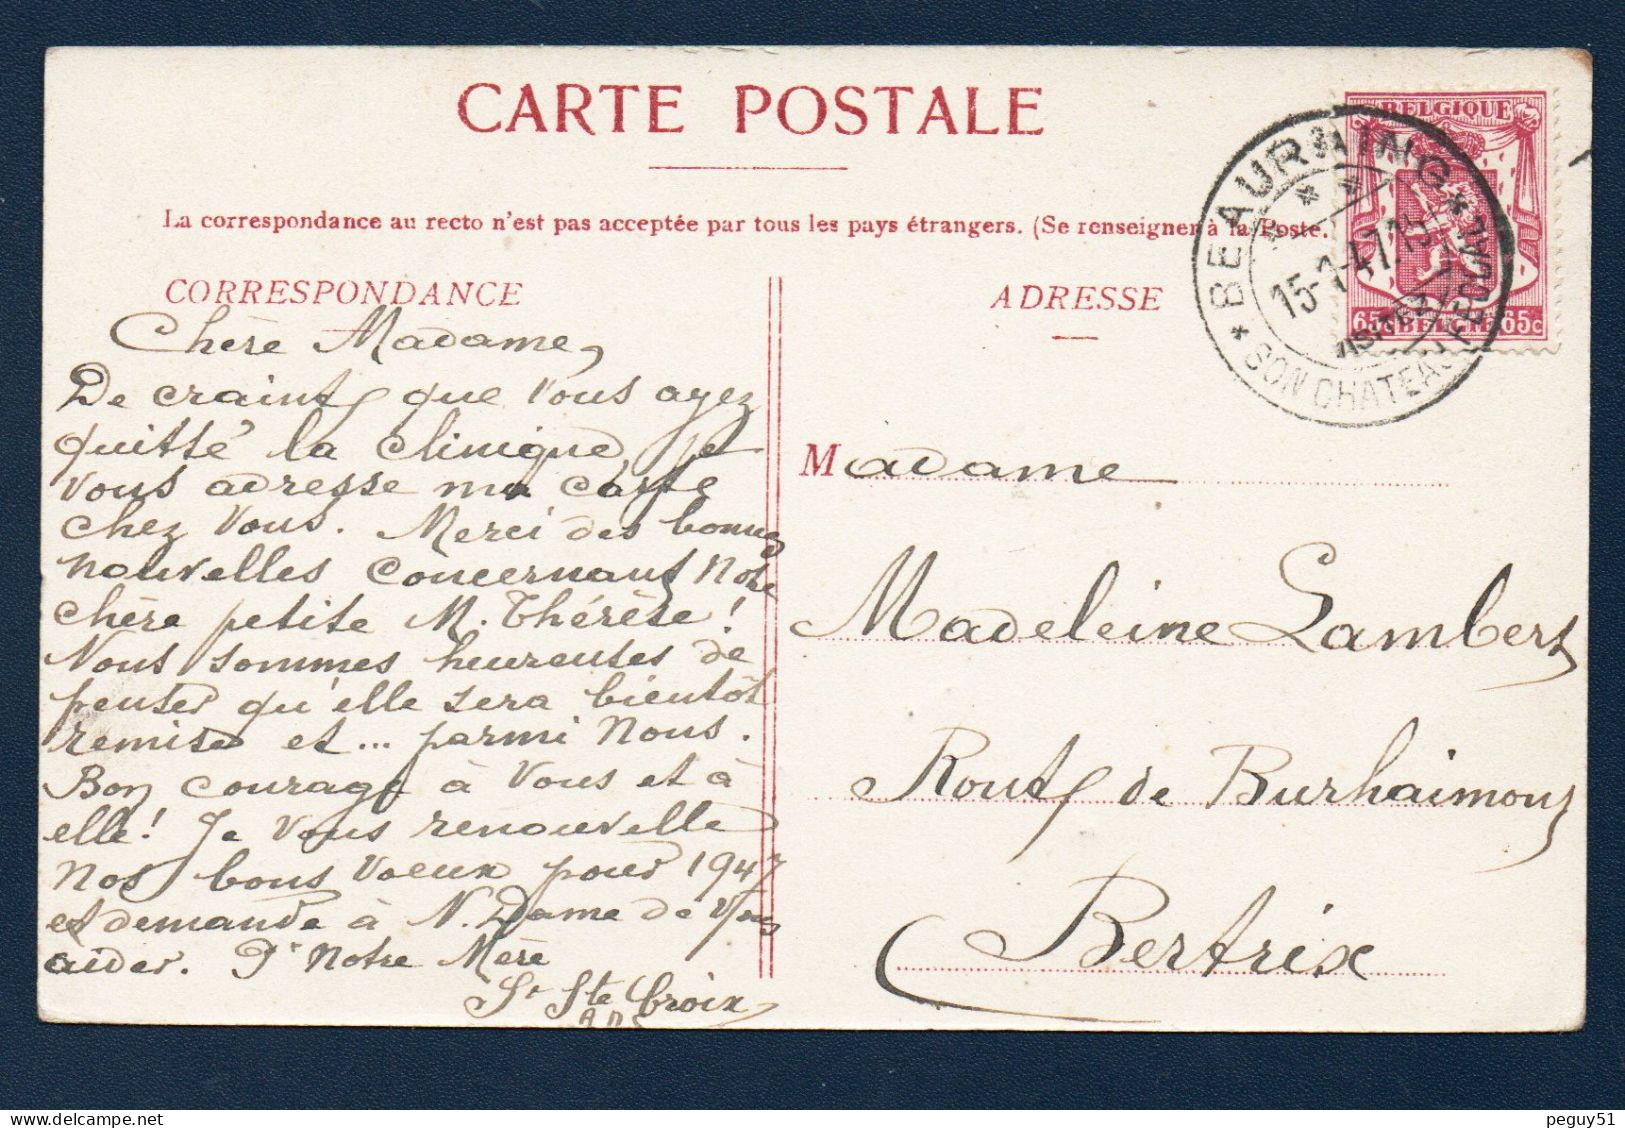 CARTE POSTALE
La correspondance au recto n'est pas acceptée par tous les pays étrangers. (Se renseigner à la Poste.
CORRESPONDANCE
Chère Madame,
De crainte que Vous ayez
quitté la clinique, je
vous adresse ma carte
chez Vous. Merci des bonnes
nouvelles concernant Notre
chère petite M. Thérèse!
Nous sommes heureuses de
penser qu'elle sera bientôt
remise et... parmi Nous.
Bon courage à Vous et à
elle! Je Vous renouvelle
Nos bons Voeux pour 1947
et demande à N. Dame de Vous
aider. Pr Notre Mère
Sr Ste Croix
ADRESSE
Madame
Madeleine Lambert
Route de Burhaimont
Bertrix
BELGIQUE
65c BELGIE 65c
* BEAURAING *
15-1-47
VISITEZ
SON CHATEAU FEODAL
peguy51